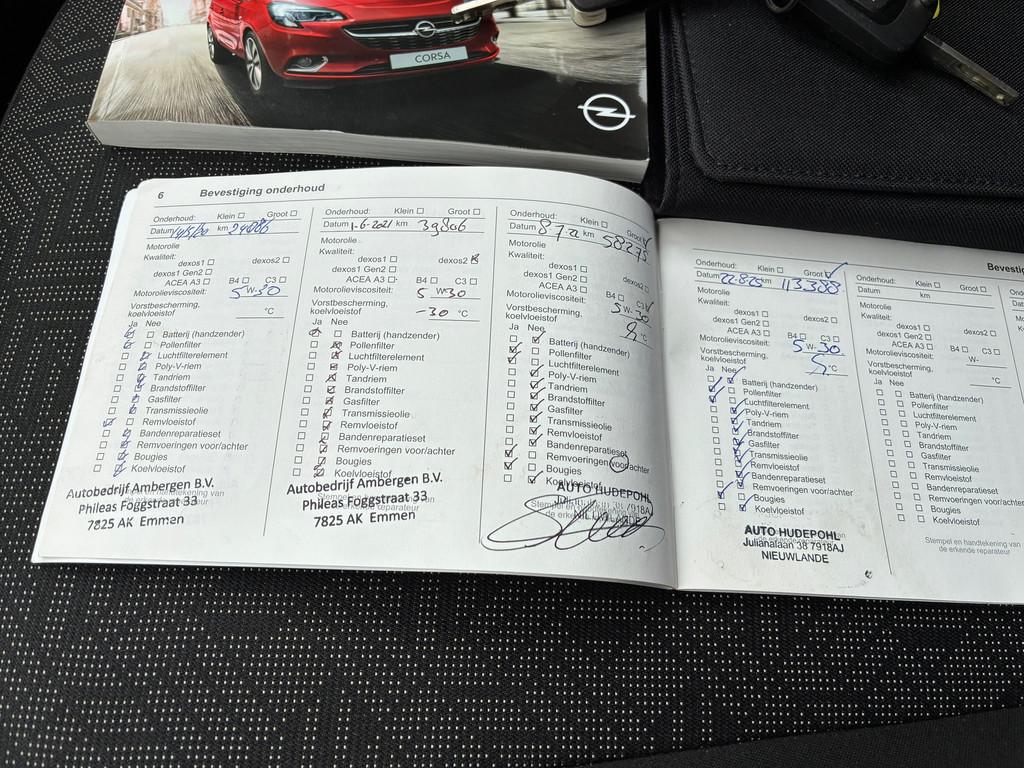 CORSA
6 Bevestiging onderhoud
Onderhoud: Klein ☐ Groot ☐
Datum km
Motorolie
Kwaliteit:
dexos1 ☐ dexos2 ☐
dexos1 Gen2 ☐
ACEA A3 ☐ B4 ☐ C3 ☐
Motorolieviscositeit: 5 W-30
Vorstbescherming,
koelvloeistof °C
Ja Nee
Batterij (handzender)
Pollenfilter
Luchtfilterelement
Poly-V-riem
Tandriem
Brandstoffilter
Gasfilter
Transmissieolie
Remvloeistof
Bandenreparatieset
Remvoeringen voor/achter
Bougies
Koelvloeistof
Autobedrijf Ambergen B.V.
Phileas Foggstraat 33
7825 AK Emmen
Onderhoud: Klein ☐ Groot ☐
Datum 1-6-2021 km 39806
Motorolie
Kwaliteit:
dexos1 ☐ dexos2 ☒
dexos1 Gen2 ☐
ACEA A3 ☐ B4 ☐ C3 ☐
Motorolieviscositeit: 5 W-30
Vorstbescherming,
koelvloeistof -30 °C
Ja Nee
Batterij (handzender)
Pollenfilter
Luchtfilterelement
Poly-V-riem
Tandriem
Brandstoffilter
Gasfilter
Transmissieolie
Remvloeistof
Bandenreparatieset
Remvoeringen voor/achter
Bougies
Koelvloeistof
Autobedrijf Ambergen B.V.
Phileas Foggstraat 33
7825 AK Emmen
Onderhoud: Klein ☐ Groot ☑
Datum 8-7-22 km 58275
Motorolie
Kwaliteit:
dexos1 ☐ dexos2 ☐
dexos1 Gen2 ☐
ACEA A3 ☐ B4 ☐ C3 ☑
Motorolieviscositeit: 5 W-30
Vorstbescherming,
koelvloeistof °C
Ja Nee
Batterij (handzender)
Pollenfilter
Luchtfilterelement
Poly-V-riem
Tandriem
Brandstoffilter
Gasfilter
Transmissieolie
Remvloeistof
Bandenreparatieset
Remvoeringen voor/achter
Bougies
Koelvloeistof
AUTO HUDEPOHL
7918A
Onderhoud: Klein ☐ Groot ☑
Datum 22-8-25 km 113388
Motorolie
Kwaliteit:
dexos1 ☐ dexos2 ☐
dexos1 Gen2 ☐
ACEA A3 ☐ B4 ☐ C3 ☐
Motorolieviscositeit: 5 W-30
Vorstbescherming,
koelvloeistof °C
Ja Nee
Batterij (handzender)
Pollenfilter
Luchtfilterelement
Poly-V-riem
Tandriem
Brandstoffilter
Gasfilter
Transmissieolie
Remvloeistof
Bandenreparatieset
Remvoeringen voor/achter
Bougies
Koelvloeistof
AUTO HUDEPOHL
Julianalaan 38 7918AJ
NIEUWLANDE
Onderhoud: Klein ☐
Datum km
Motorolie
Kwaliteit:
dexos1 ☐ dexos2 ☐
dexos1 Gen2 ☐
ACEA A3 ☐ B4 ☐ C3 ☐
Motorolieviscositeit: W-
Vorstbescherming,
koelvloeistof °C
Ja Nee
☐ ☐ Batterij (handzender)
☐ ☐ Pollenfilter
☐ ☐ Luchtfilterelement
☐ ☐ Poly-V-riem
☐ ☐ Tandriem
☐ ☐ Brandstoffilter
☐ ☐ Gasfilter
☐ ☐ Transmissieolie
☐ ☐ Remvloeistof
☐ ☐ Bandenreparatieset
☐ ☐ Remvoeringen voor/achter
☐ ☐ Bougies
☐ ☐ Koelvloeistof
Stempel en handtekening van
de erkende reparateur